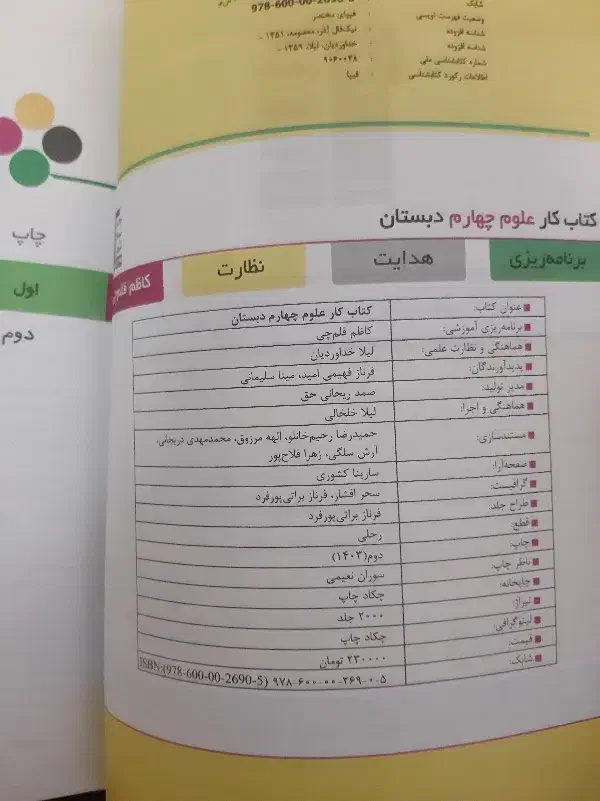 شابک
978-600-00-2690-5
وضعیت فهرست نویسی : فیپای مختصر
شناسه افزوده : نیک‌فال آذر، معصومه، ۱۳۵۱ -
شناسه افزوده : خداوردیان، لیلا، ۱۳۵۹ -
شماره کتابشناسی ملی : ۹۰۶۰۰۴۸
اطلاعات رکورد کتابشناسی : فیپا
کتاب کار علوم چهارم دبستان
برنامه‌ریزی هدایت نظارت کاظم قلم‌چی
چاپ
اول
دوم
عنوان کتاب: کتاب کار علوم چهارم دبستان
برنامه‌ریزی آموزشی: کاظم قلم‌چی
هماهنگی و نظارت علمی: لیلا خداوردیان
پدیدآورندگان: فرناز فهیمی امید، مینا سلیمانی
مدیر تولید: صمد ریحانی حق
هماهنگی و اجرا: لیلا خلخالی
مستندسازی: حمیدرضا رحیم‌خانلو، الهه مرزوق، محمدمهدی دریجانی،
آرش سلگی، زهرا فلاح‌پور
صفحه‌آرا: سارینا کشوری
گرافیست: سحر افشار، فرناز براتی‌پورفرد
طراح جلد: فرناز براتی‌پورفرد
قطع: رحلی
چاپ: دوم(۱۴۰۳)
ناظر چاپ: سوران نعیمی
چاپخانه: چکاد چاپ
تیراژ: ۲۰۰۰ جلد
لیتوگرافی: چکاد چاپ
قیمت: ۲۳۰۰۰۰ تومان
شابک: ۹۷۸-۶۰۰-۰۰-۲۶۹۰-۵ {ISBN:(978-600-00-2690-5